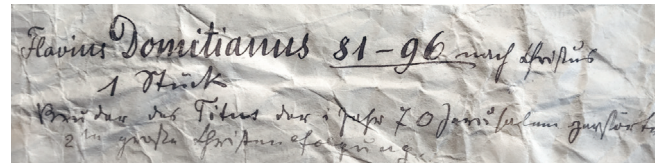 Flavius Domitianus 81-96 nach Christus
1 Stück
Bruder des Titus der i Jahr 70 Jerusalem zerstörte
2te große Christenverfolgung.